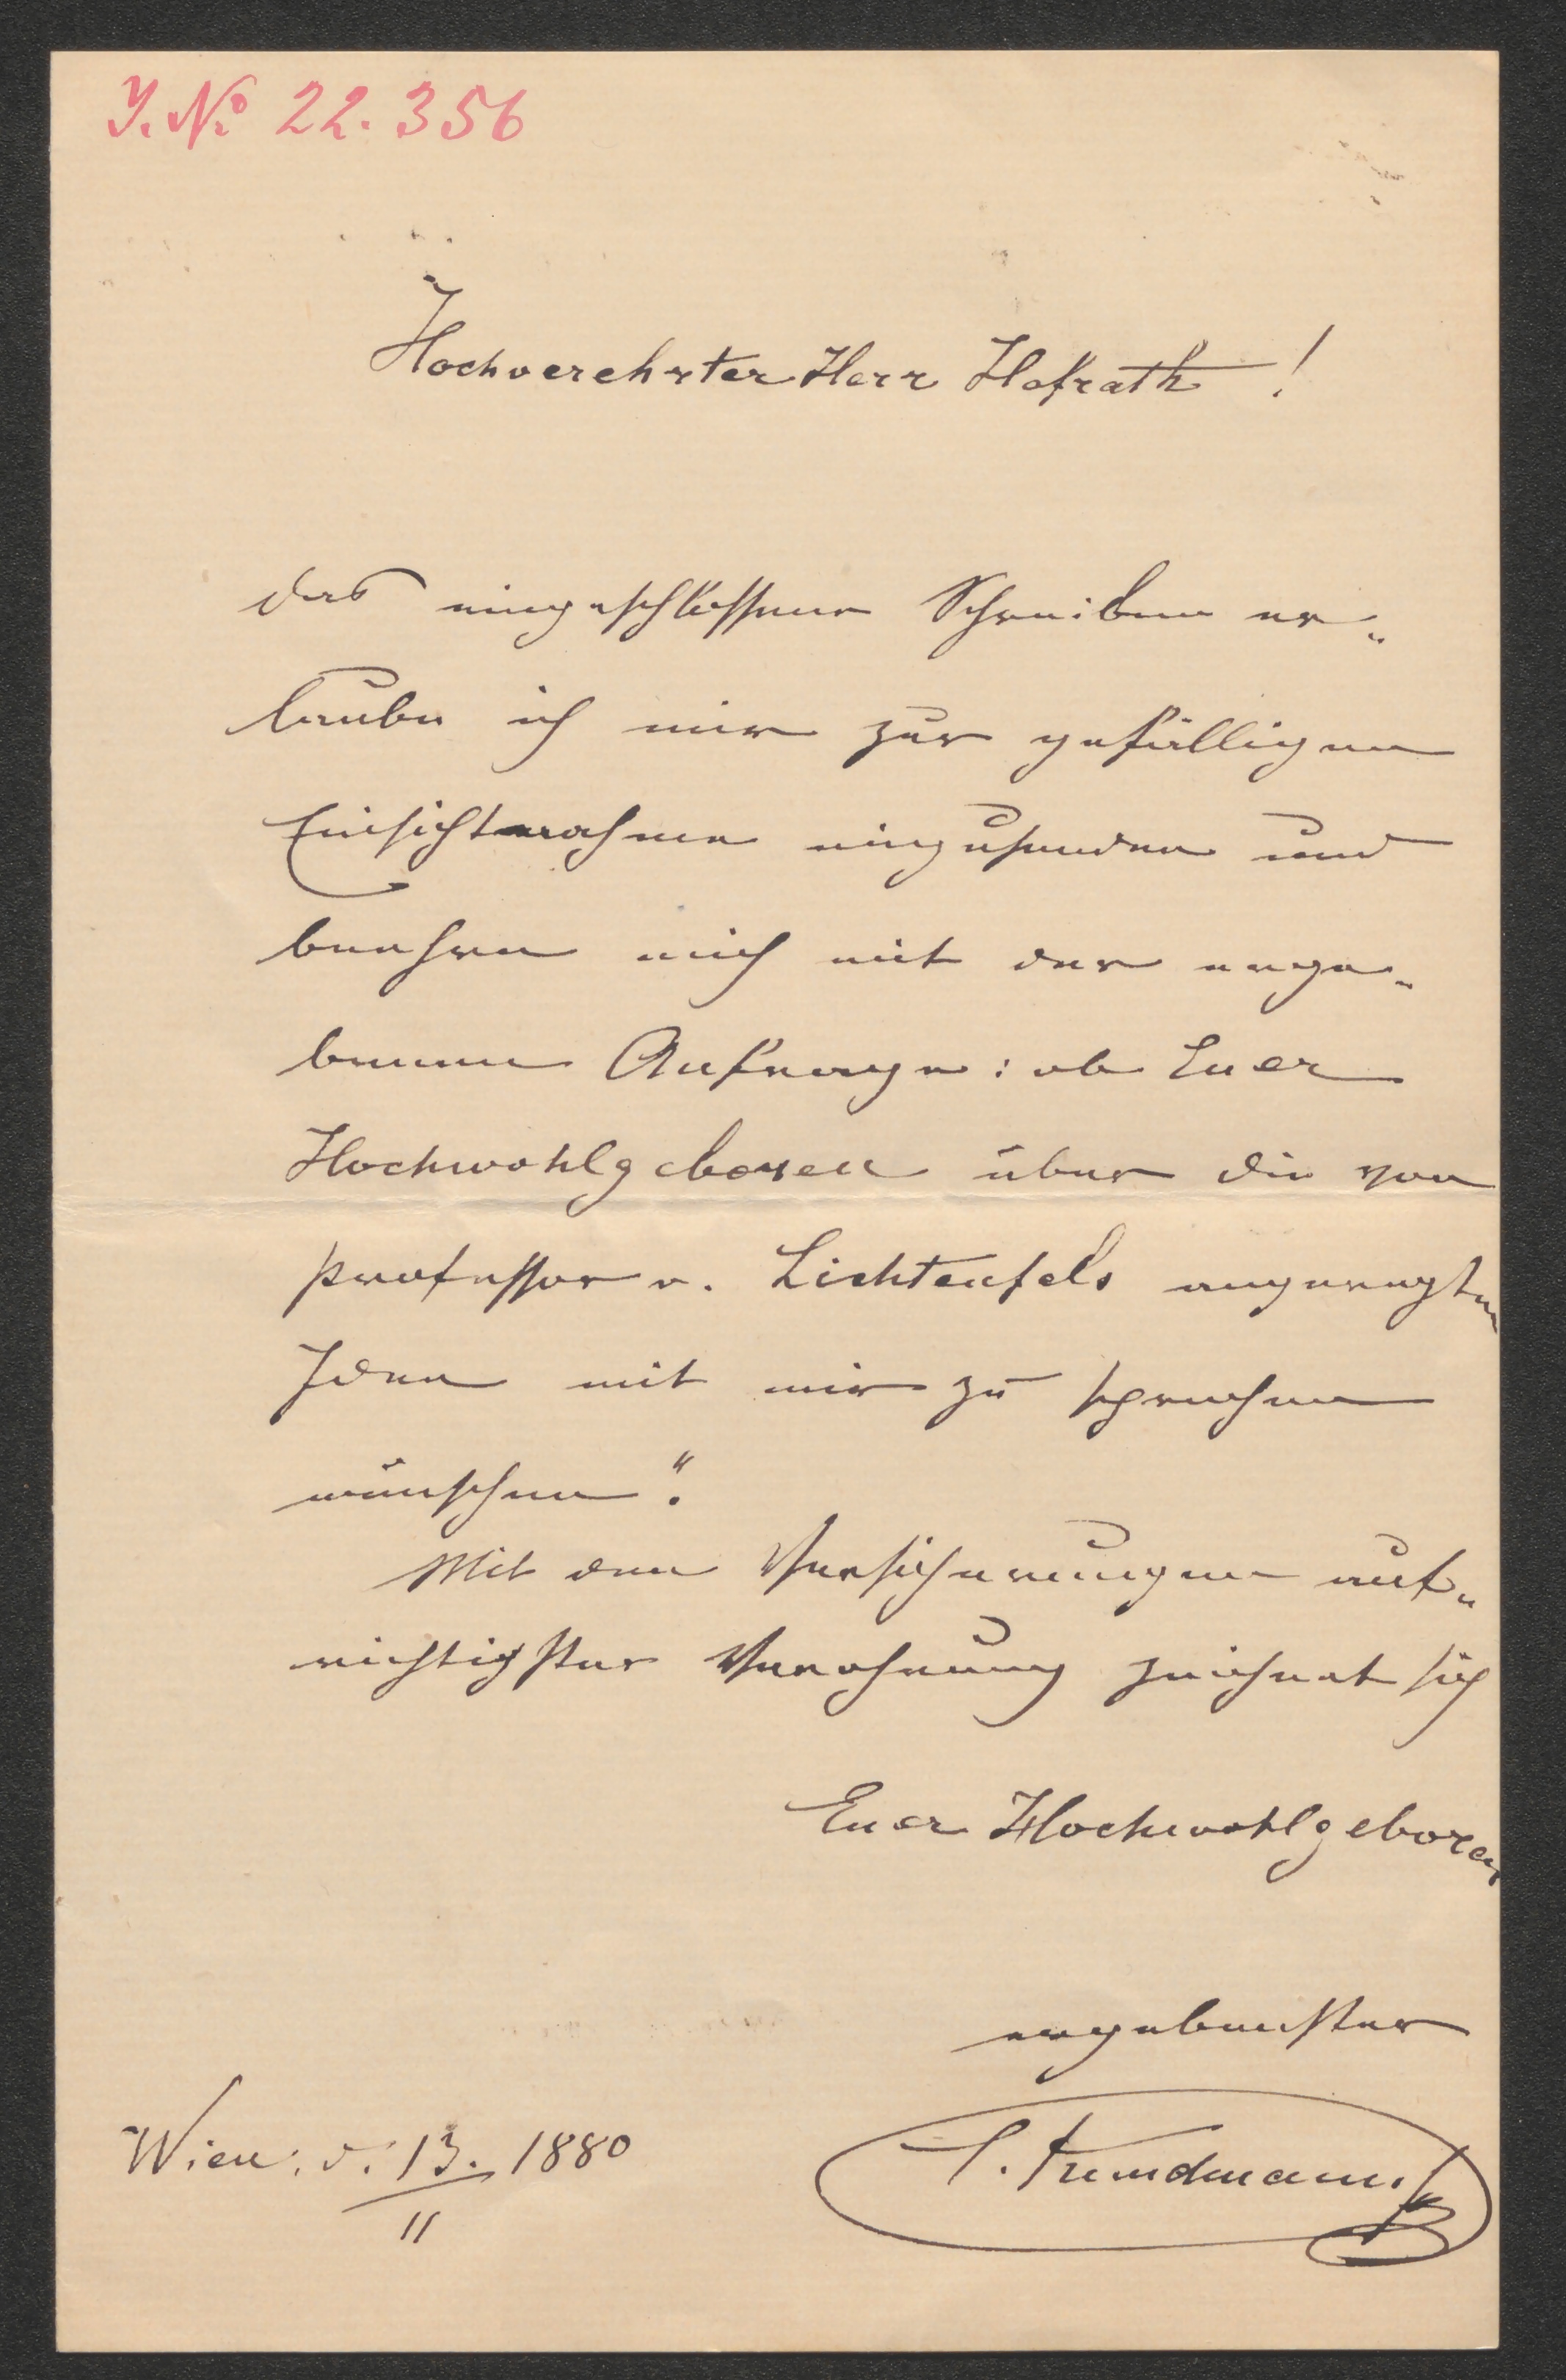 J. No 22.356
Hochverehrter Herr Hofrath !
das eingeschlossene Schreiben er„
laube ich mir zur gefälligen
Einsichtnahme einzusenden und
beehre mich mit der erge„
benen Anfrage: ob Euer
Hochwohlgeboren über die von
Professor v. Lichtenfels angeregten
Ideen mit mir zu sprechen
wünschen“.
Mit den Versicherungen auf„
richtigster Verehrung zeichnet sich
Euer Hochwohlgeboren
ergebenster
C. Kundmann.
Wien: d: 13. 1880
11